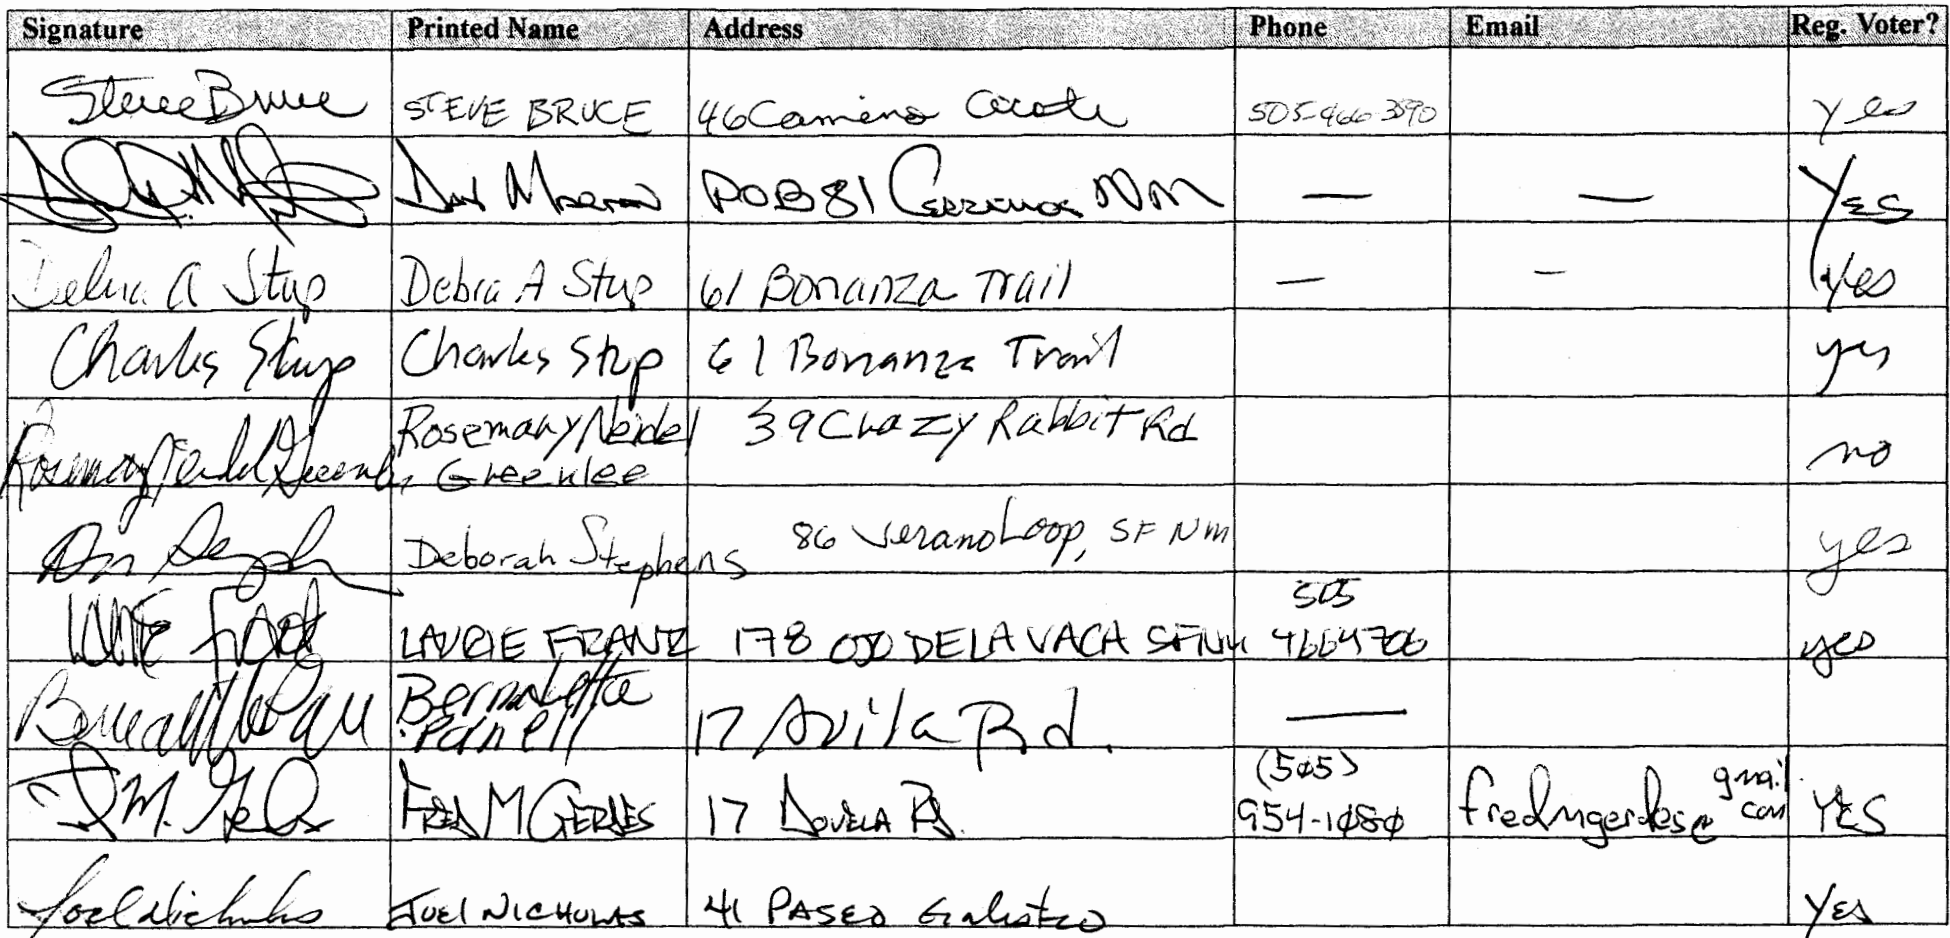 Signature Printed Name Address Phone Email Reg. Voter?
Steve Bruce STEVE BRUCE 46 Camino 505-466-3590 yes
POB 81 Cerrillos NM — — Yes
Debra A Stup Debra A Stup 61 Bonanza Trail — — yes
Charles Stup Charles Stup 61 Bonanza Trail yes
Rosemary Neidel 39 Crazy Rabbit Rd
Greenlee no
Deborah Stephens 86 Verano Loop, SF NM yes
505
LAURIE FRANZ 178 OJO DE LA VACA SFNM 4664706 yes
Bernadette
Parnell 17 Avila Rd. —
(505) gmail
FRED M GERDES 17 Rd. 954-1080 fredmgerdes@ com YES
Joel Nicholas JOEL NICHOLAS 41 PASEO Galisteo Yes